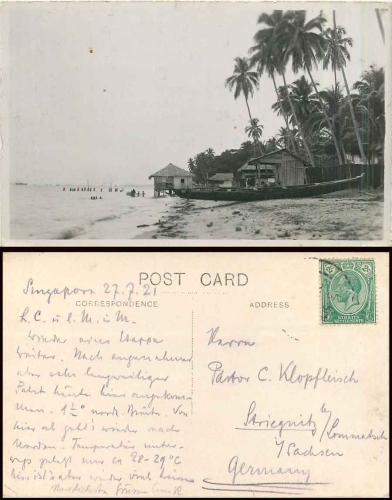 Singapore 27.7.21
POST CARD
CORRESPONDENCE
ADDRESS
L. C. u. l. M. u. M.
Wieder eine Etappe
weiter. Nach angenehmer
aber sehr langweiliger
Fahrt heute hier angekom-
men. 1½° nördl. Breite. Von
hier ab geht's wieder nach
Norden. Temperatur unter-
wegs zuletzt nur ca 28-29°C
hier ist's aber wieder
Herrn
Pastor C. Klopfleisch
Striegnitz b/
Lommatzsch
i/Sachsen
Germany
STRAITS
SETTLEMENTS